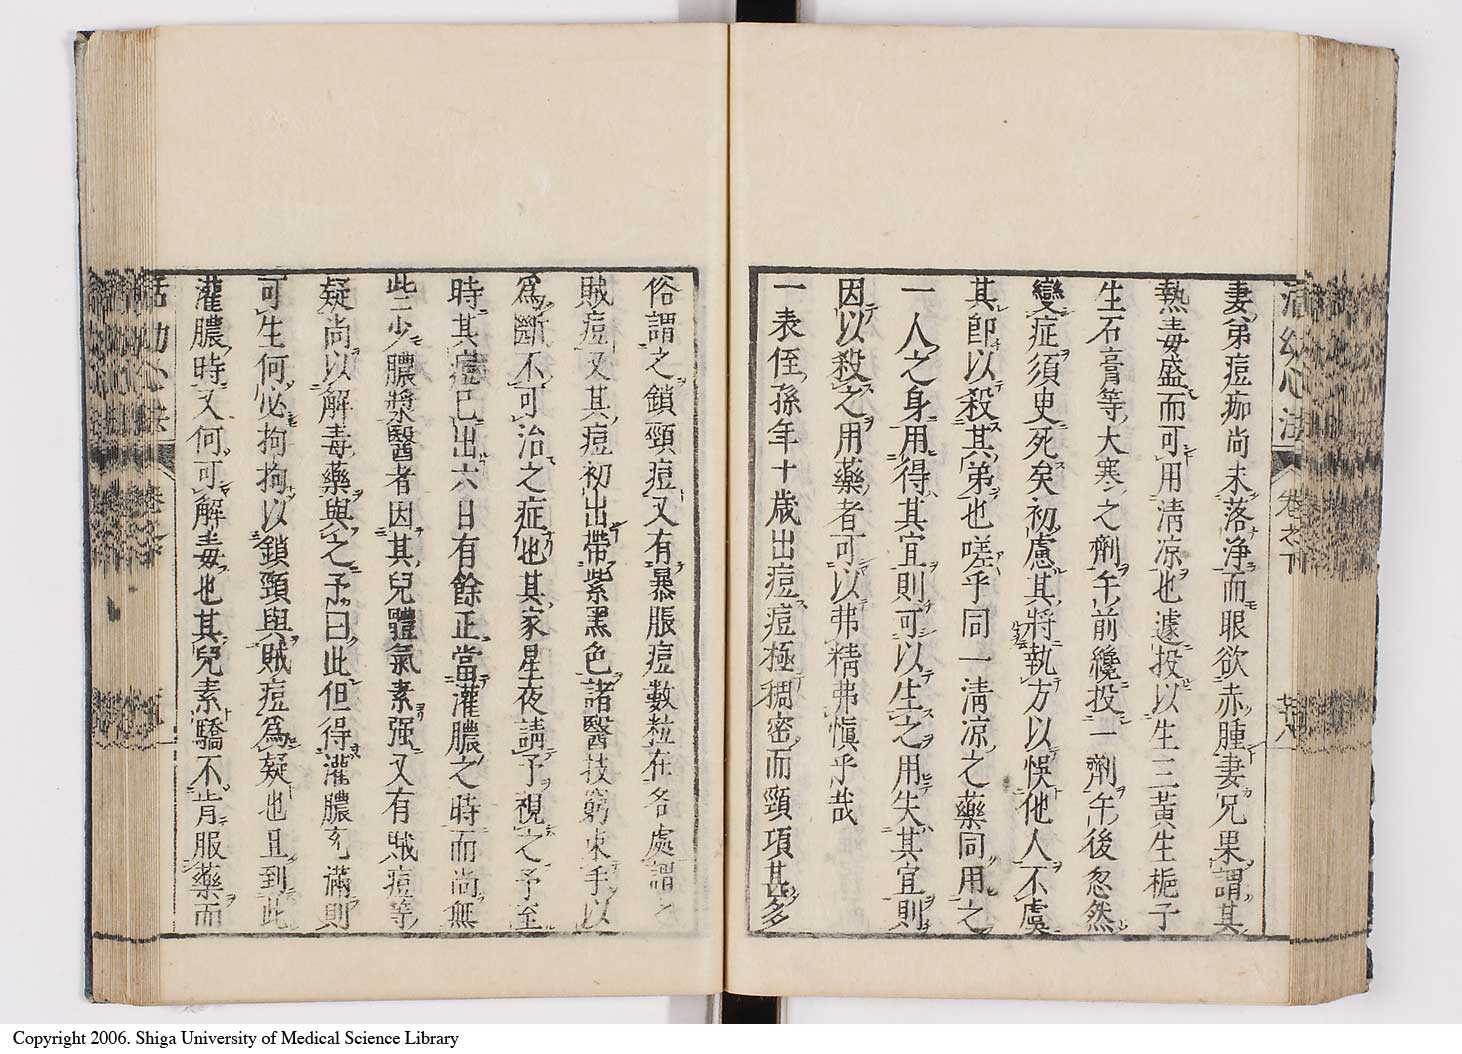 活幼心法 卷之下
妻弟痘痂尚未落淨而眼欲赤腫妻兄果謂其
熱毒盛而可用清凉也遽投以生三黃生梔子
生石膏等大寒之劑午前纔投一劑午後忽然
變症須臾死矣初慮其將執方以悞他人不虞
其卽以殺其弟也嗟乎同一清凉之藥同用之
一人之身用得其宜則可以生之用失其宜則
因以殺之用藥者可以弗精弗愼乎哉
一表侄孫年十歲出痘痘極稠密而頸項甚多
俗謂之鎖頸痘又有暴脹痘數粒在各處謂之
賊痘又其痘初出帶紫黑色諸醫技窮束手以
爲斷不可治之症也其家星夜請予視之予至
時其痘已出六日有餘正當灌膿之時而尚無
些少膿漿醫者因其兒體氣素强又有賊痘等
疑尚以解毒藥與之予曰此但得灌膿充滿則
可生何必拘拘以鎖頸與賊痘爲疑也且到此
灌膿時又何可解毒也其兒素驕不肯服藥而
活幼心法
Copyright 2006. Shiga University of Medical Science Library